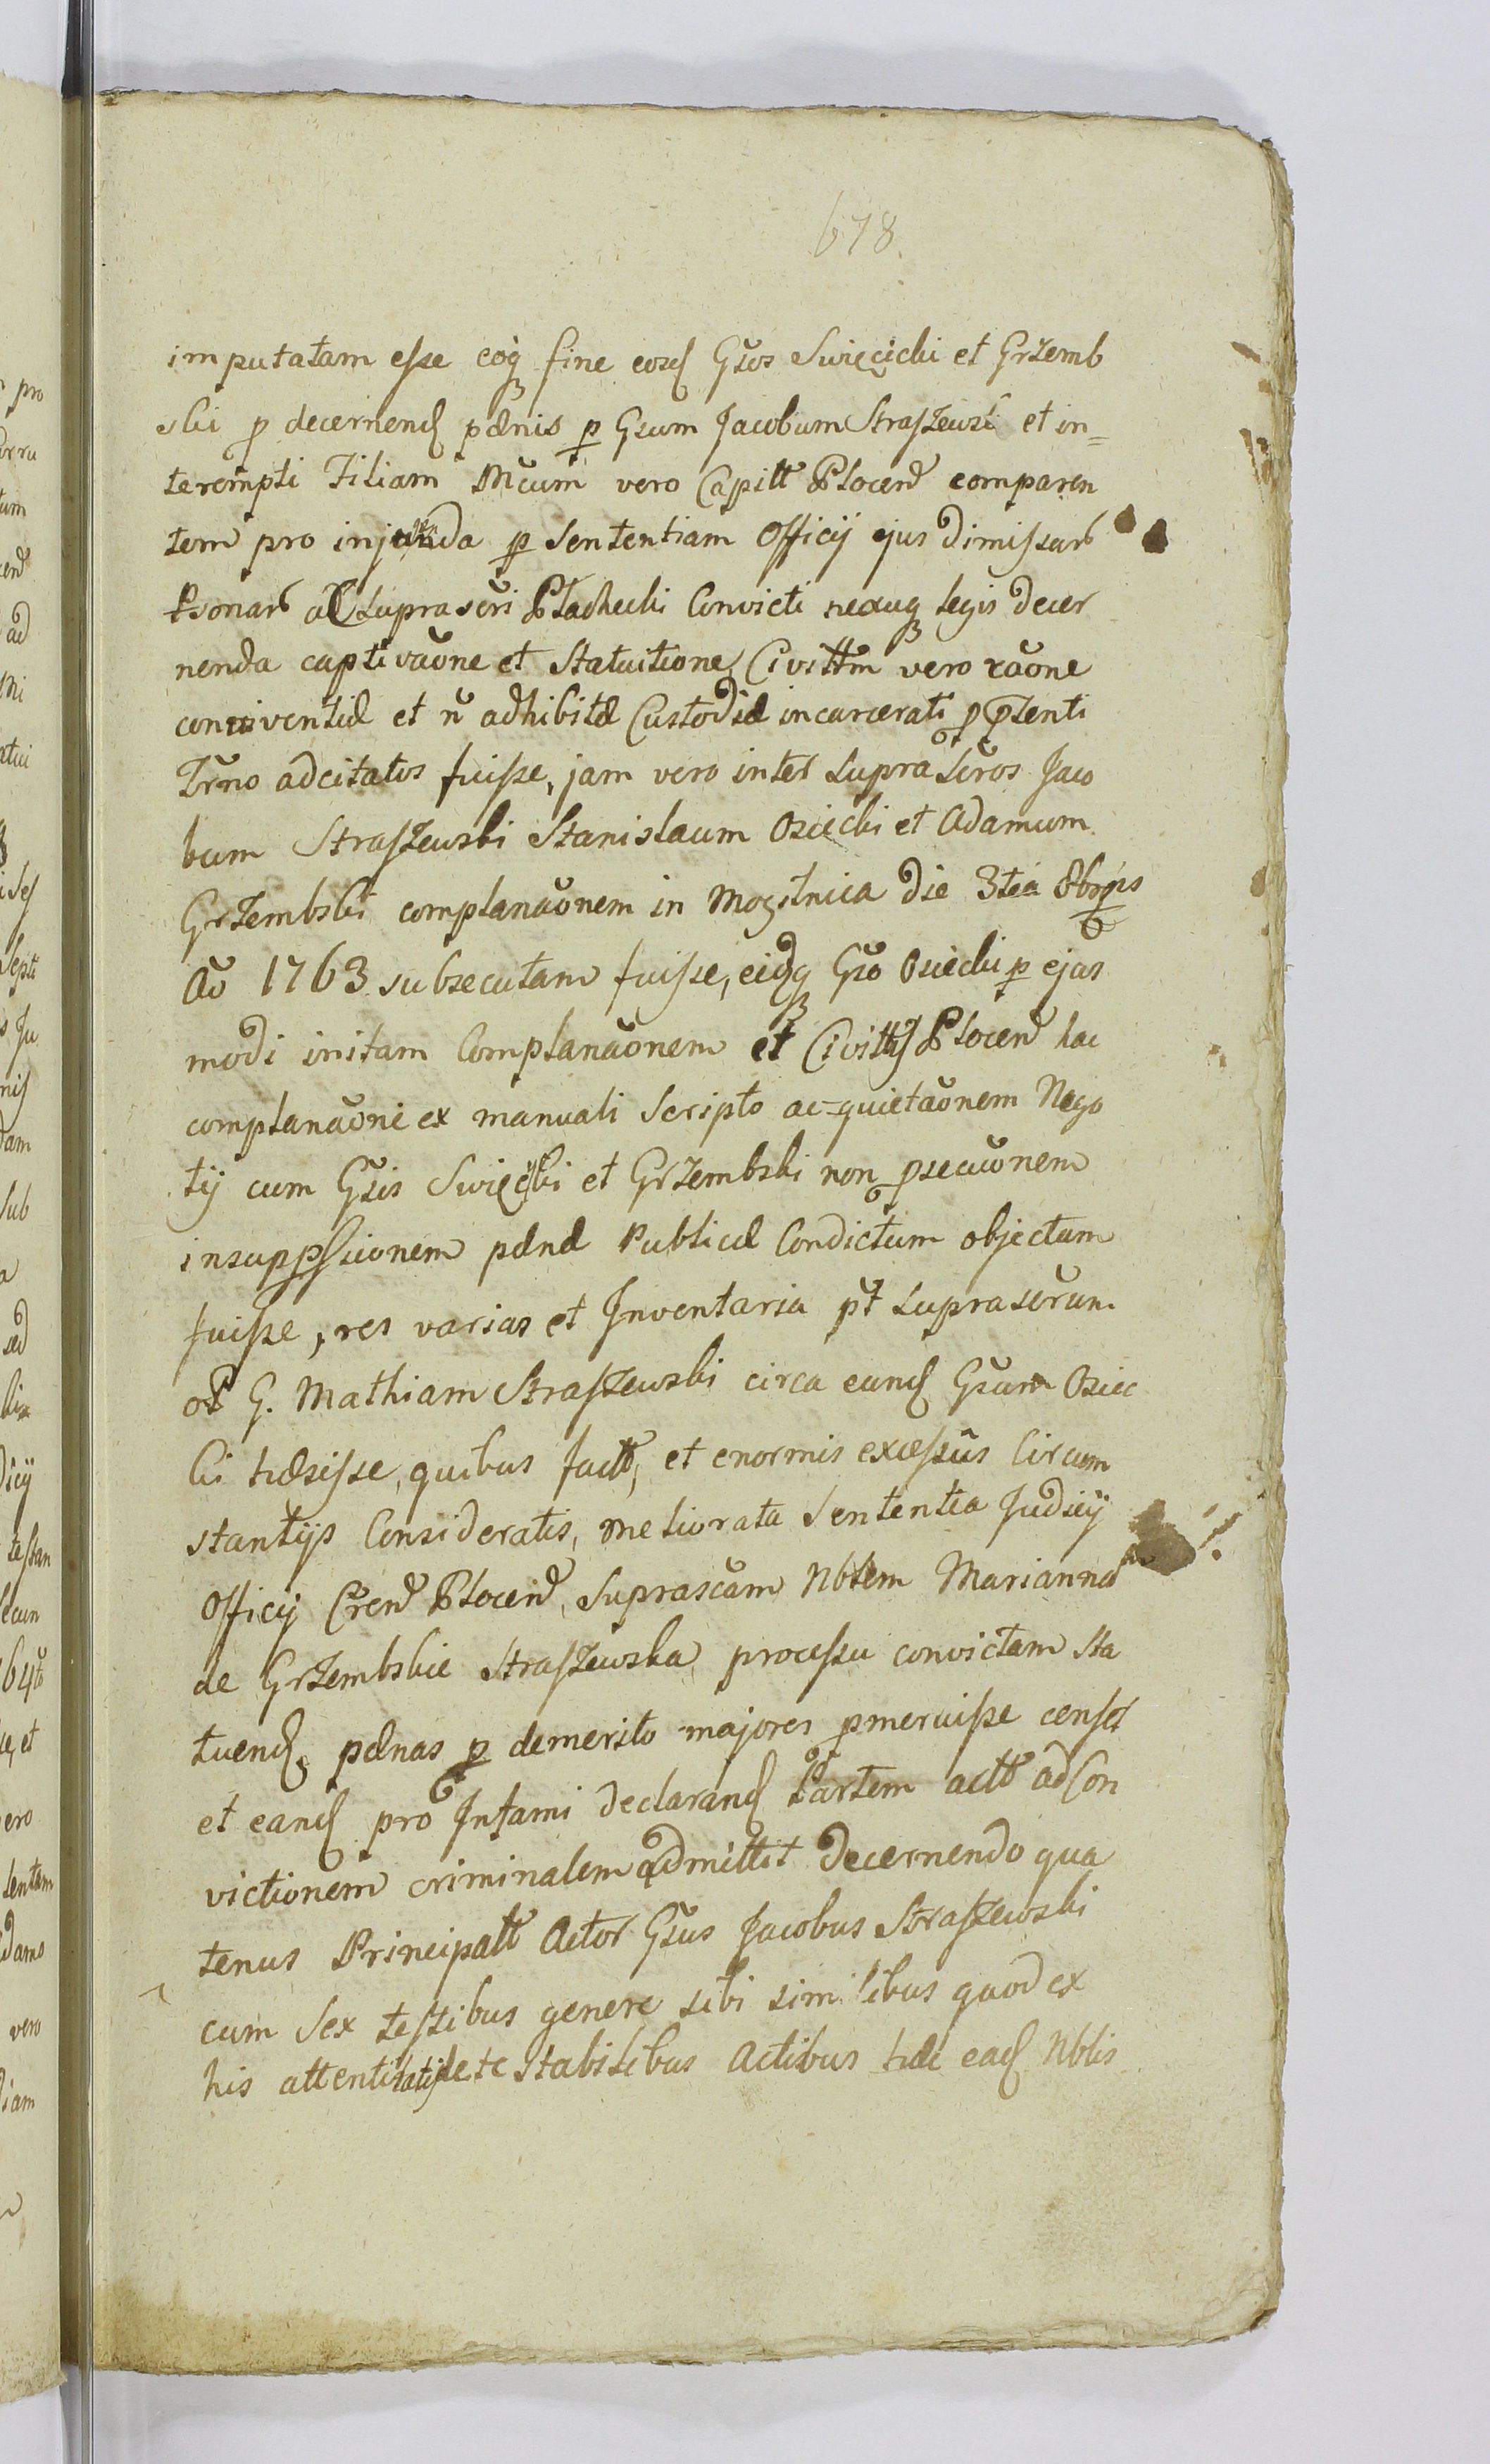 678.
imputatam esse eoq fine eosd Gsos Swięcicki et Grzemb
ski p decernend pænis p Gsum Jacobum Straszewski et in=
terempti Filiam Mcum vero Capitt Plocens comparen
tem pro injuncda p Sententiam Officij ejus dimissarb
Psonarb ac suprascri Plachecki Convicti nexuq legis decer
nenda captivaõne et Statuitione, Civittm vero raõne
conniventiæ et ñ adhibitæ Custodiæ incarcerati p pstenti
Trmno adcitatos fuisse, jam vero inter Suprascros Jaco
bum Straszewski Stanislaum Osiecki et Adamum
Grzembski complanaõnem in Mogilnica die 3tia 8bris
Aõ 1763 subsecutam fuisse, eidq Gso Osiecki p ejus
modi initam Complanaõnem et Civittis Plocens hac
complanaõni ex manuali Scripto ac-quietaõnem Nego
tij cum Gsis Swięcicki et Grzembski non psecuõnem
insuppssionem pænæ Publicæ Condictum objectum
fuisse, res varias et Inventaria pt suprascrum
ol G. Mathiam Straszewski circa eund Gsum Osiec
ki hæsisse, quibus factt, et enormis excessus Circum
stantijs Consideratis, meliorata Sententia Judicij
Officij Crens Plocens, Suprascam Nblem Mariannã
de Grzembskie Straszewska processu convictam Sta
tuend pænas p demerito majores pmeruisse censet
et eand pro Infami declarand Partem actt ad Con
victionem criminalem admittit decernendo qua
tenus Principatt Actor Gsus Jacobus Straszewski
cum Sex testibus genere sibi similibus quod ex
his attentitatis detestabilibus Actibus hæc ead Nblis